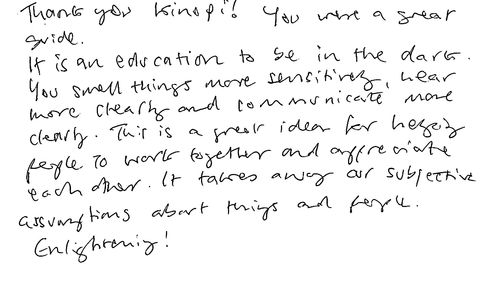 Thank you Kinopi! You were a great
guide.
It is an education to be in the dark.
You smell things more sensitively, hear
more clearly and communicate more
clearly. This is a great idea for helping
people to work together and appreciate
each other. It takes away our subjective
assumptions about things and people.
Enlightening!